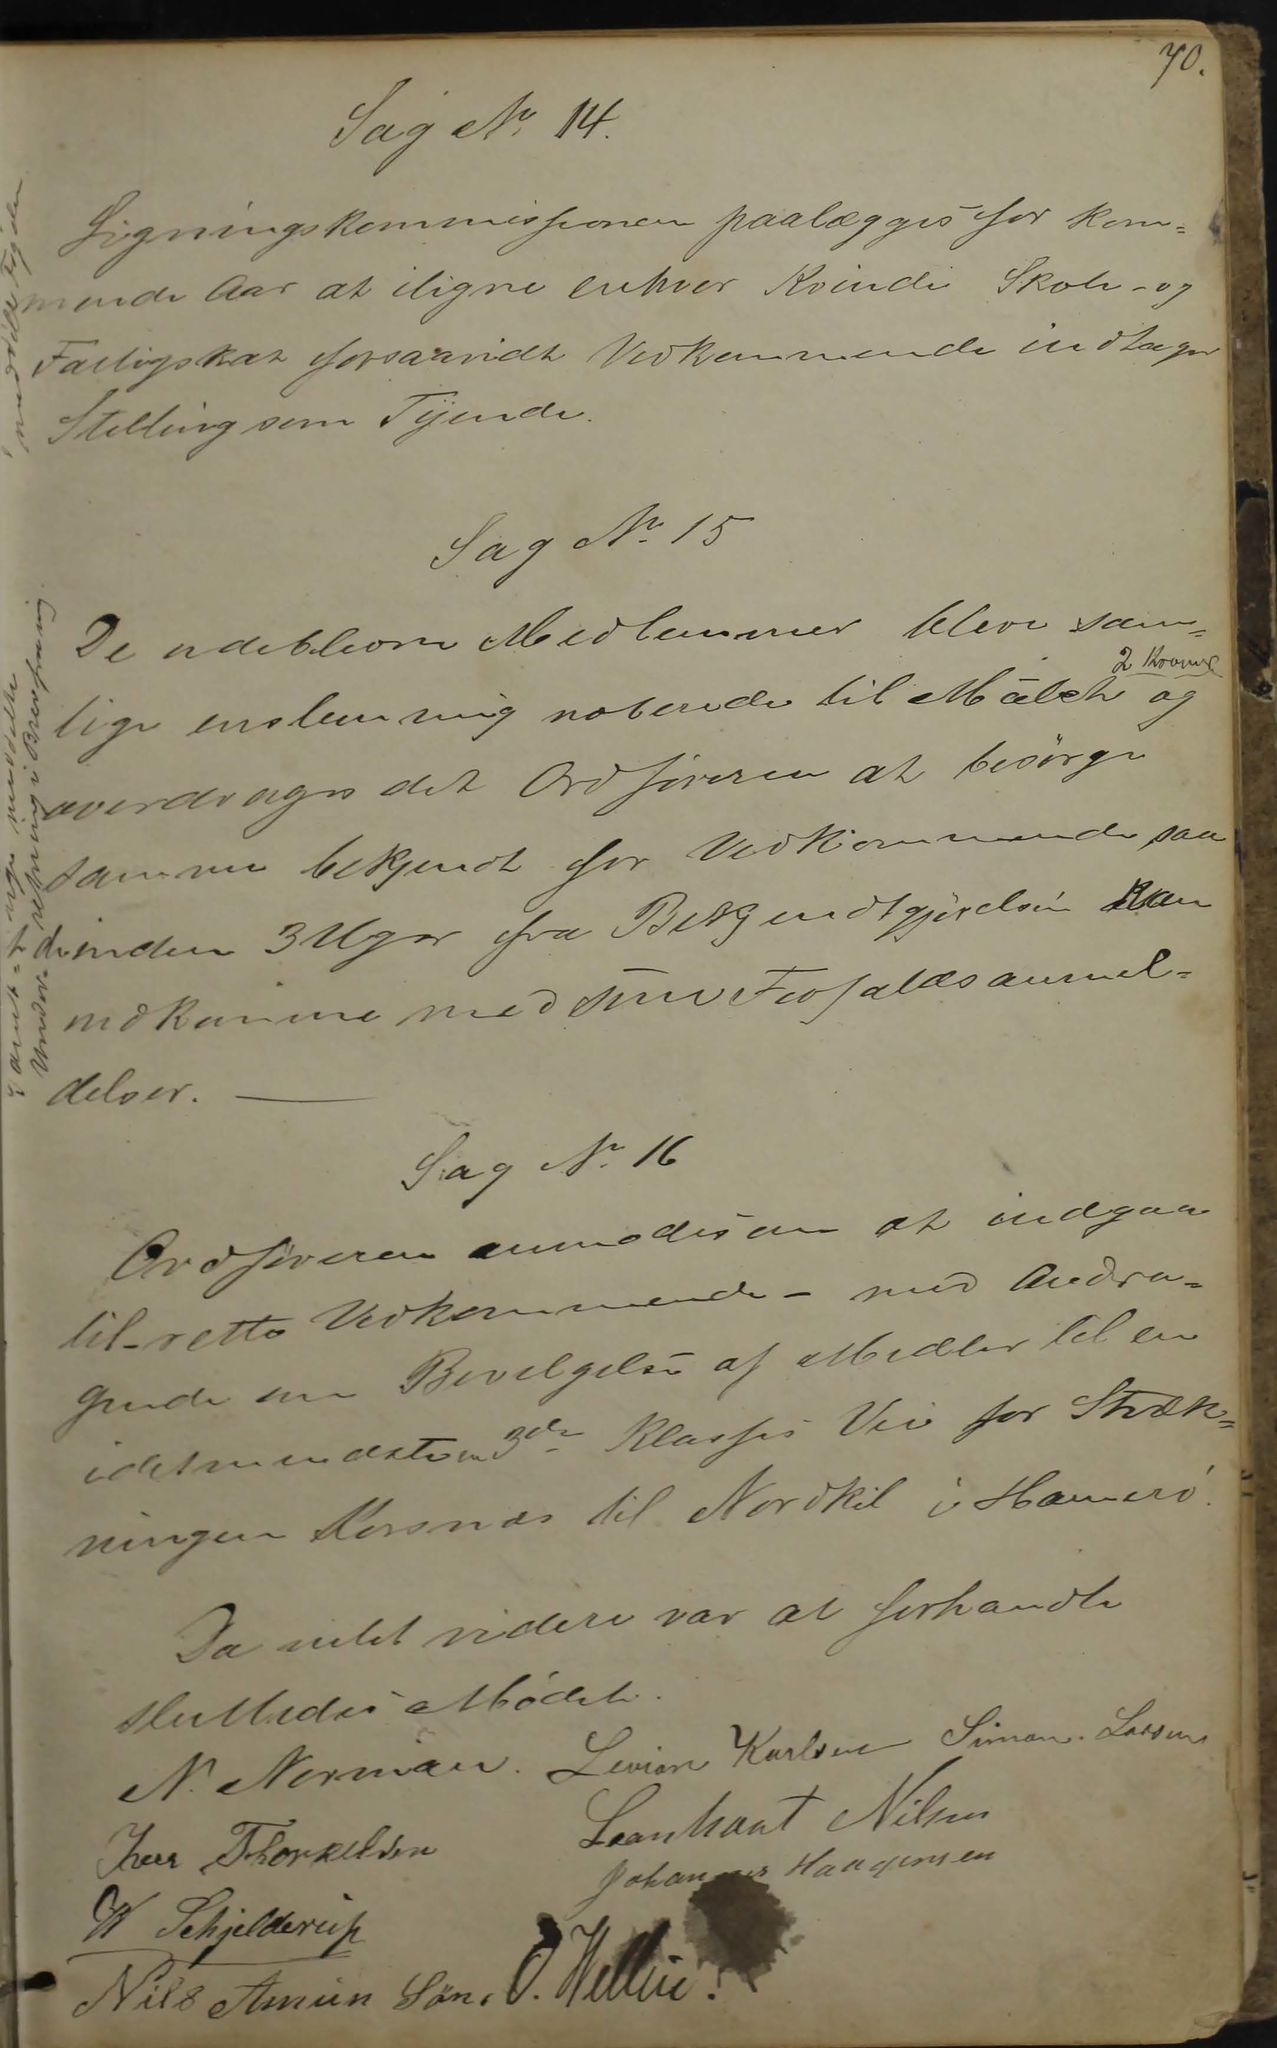 70.
Sag No. 14.
Ligningskommissionen paalægges for kom=
mende Aar at iligne enhver Kvinde Skole- og
Fattigskat forsaavidt Vedkommende indtager
Stilling som Tjende.
Sag No. 15
De udeblevne Medlemmer bleve sam=
2 Kroner
lige enstemmig noterede til Mulct og
overdrages det Ordføreren at besørge
samme bekjendt for Vedkommende saa
de inden 3 Uger fra Bekjendtgjørelsen kan
indkomme med sine Forfaldsanmel=
delser.
Sag No. 16
Ordføreren anmodes om at indgaa
til rette Vedkommende - med Andra=
gende om Bevilgelse af Midler til en
idetmindste en 3die Klasses Vei for Stræk=
ningen Korsnæs til Nordkil i Hamerø.
Da intet videre var at forhandle
sluttedes Mødet.
N. Norman. Levion Karlsen Simon. Larsen
Iver Thorkelsen Leonhart Nilsen
Johannes Haagensen
W Schjelderup
Nils Amun Søn. O. Wellie.
meddelt Fogden
Underretning i Brev fra mig